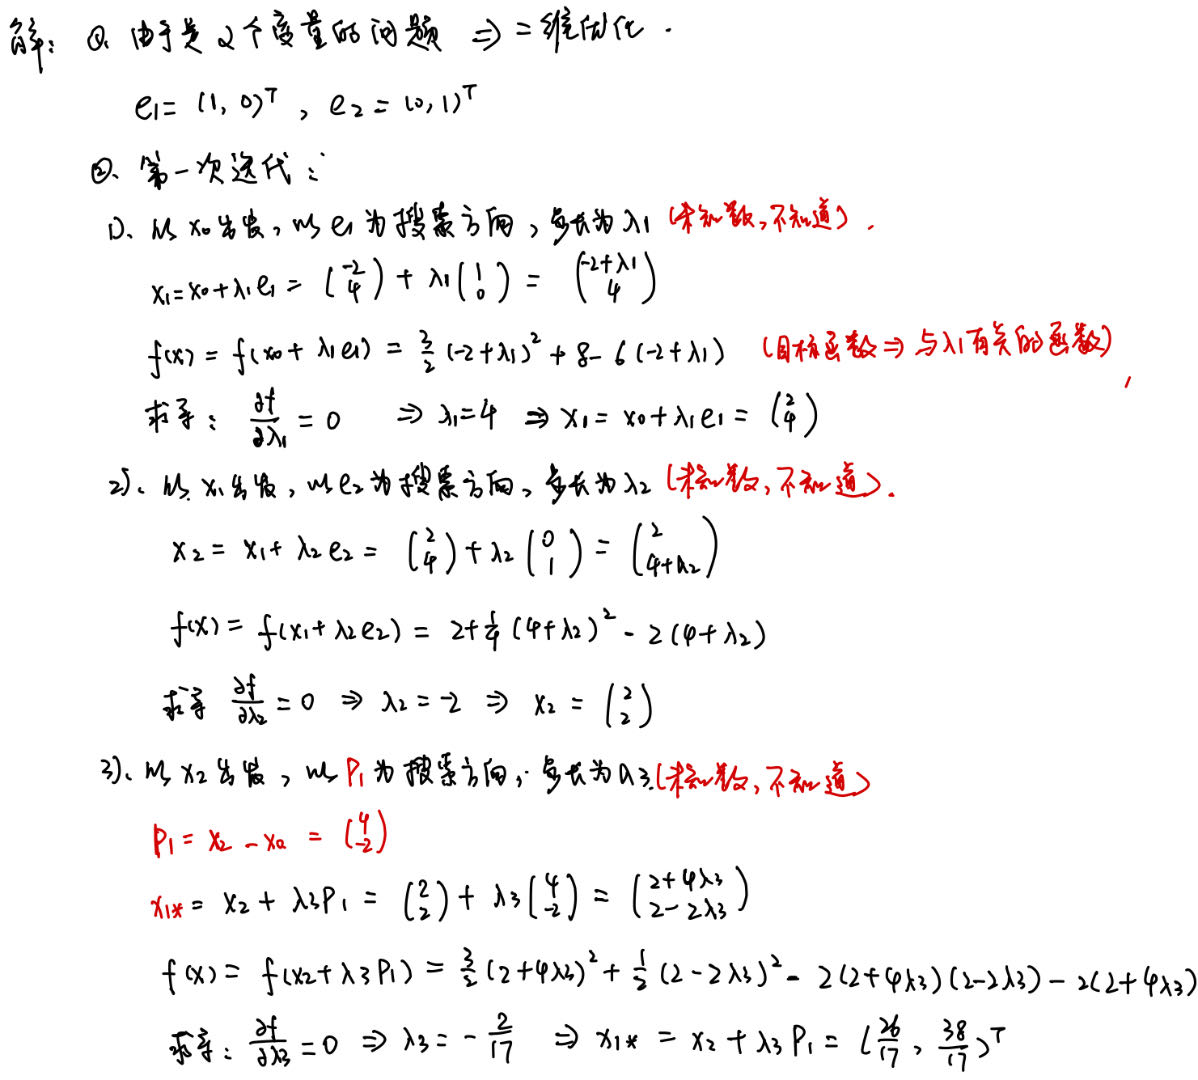 解: ①、由于是2个变量的问题 ⇒ 二维优化.
e₁= (1, 0)ᵀ , e₂ = (0, 1)ᵀ
②、第一次迭代:
1)、从 x₀ 出发, 以 e₁ 为搜索方向, 步长为 λ₁ (未知数, 不知道).
x₁=x₀+λ₁e₁ = (-2 4) + λ₁(1 0) = (-2+λ₁ 4)
f(x) = f(x₀+λ₁e₁) = 3/2 (-2+λ₁)² + 8 - 6(-2+λ₁) (目标函数 ⇒ 与λ₁有关的函数)
求导: ∂f/∂λ₁ = 0 ⇒ λ₁=4 ⇒ x₁ = x₀+λ₁e₁ = (2 4)
2)、从 x₁ 出发, 以 e₂ 为搜索方向, 步长为 λ₂ (未知数, 不知道).
x₂ = x₁+λ₂e₂ = (2 4) + λ₂(0 1) = (2 4+λ₂)
f(x) = f(x₁+λ₂e₂) = 2+ (4+λ₂)² - 2(4+λ₂)
求导 ∂f/∂λ₂ = 0 ⇒ λ₂ = -2 ⇒ x₂ = (2 2)
3)、从 x₂ 出发, 以 P₁ 为搜索方向, 步长为 λ₃.(未知数, 不知道)
P₁ = x₂ - x₀ = (4 -2)
x₁* = x₂ + λ₃P₁ = (2 2) + λ₃(4 -2) = (2+4λ₃ 2-2λ₃)
f(x) = f(x₂+λ₃P₁) = 3/2 (2+4λ₃)² + 1/2 (2-2λ₃)² - 2(2+4λ₃)(2-2λ₃) - 2(2+4λ₃)
求导: ∂f/∂λ₃ = 0 ⇒ λ₃ = - 2/17 ⇒ x₁* = x₂+λ₃P₁ = (26/17, 38/17)ᵀ